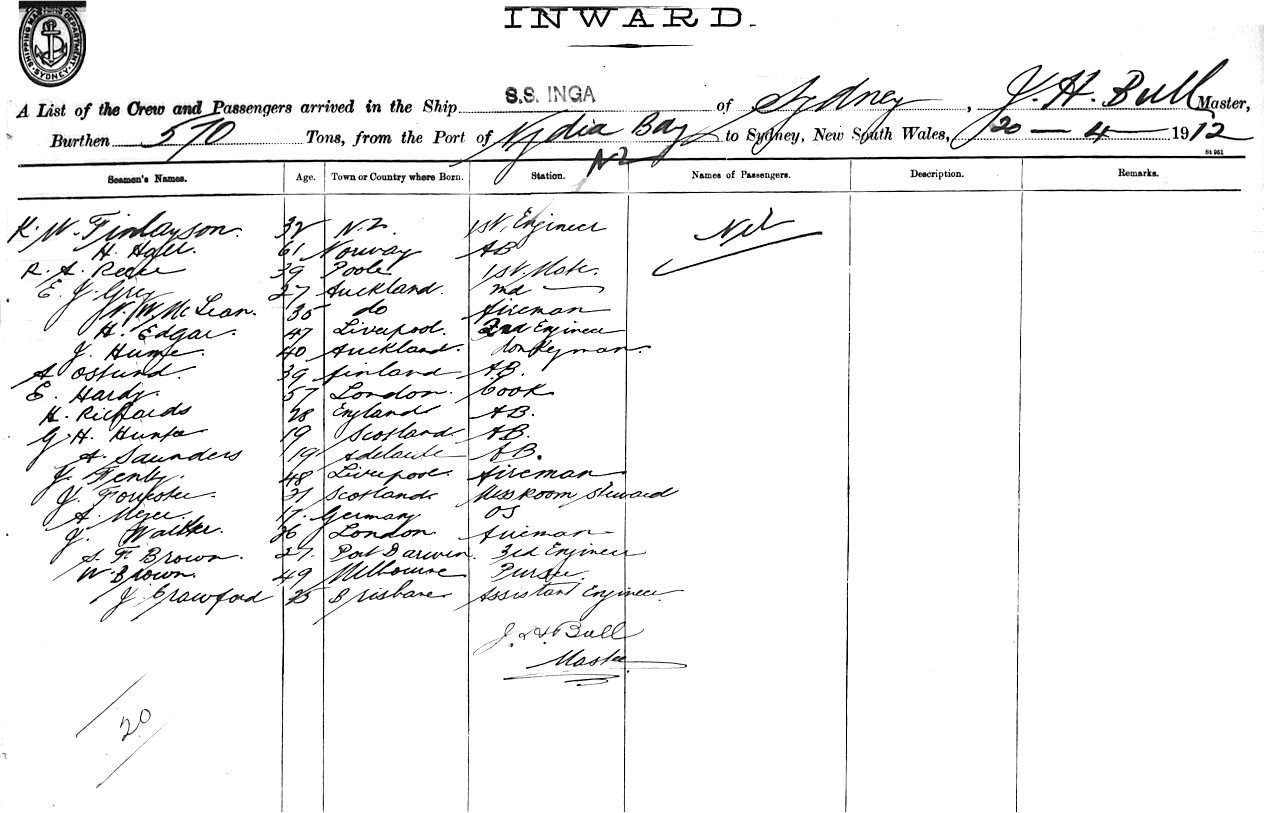 INWARD.
SHIPPING MASTER'S DEPARTMENT SYDNEY
A List of the Crew and Passengers arrived in the Ship S.S. INGA of Sydney, J. H. Bull Master,
Burthen 570 Tons, from the Port of Nydia Bay NZ to Sydney, New South Wales, 20-4-1912
St 951
Seamen's Names. Age. Town or Country where Born. Station. Names of Passengers. Description. Remarks.
K. W. Finlayson. 32 N.Z. 1st Engineer Nil
H. Hall. 61 Norway AB
R. A. 39 Poole 1st Mate.
E. J. Grey 27 Auckland. 2nd
N. W. McLean. 35 do Fireman
H. Edgar. 47 Liverpool. 2nd Engineer
J. Hume. 40 Auckland. Donkeyman.
A Oslund. 39 Finland AB.
E. Hardy. 57 London. Cook
H. Richards 28 England AB.
G. H. Hunter 19 Scotland AB.
A. Saunders 19 Adelaide AB.
J. Fenby. 48 Liverpool. Fireman
J. Forrester. 31 Scotland Messroom Steward
A. Meyer. 17. Germany OS
J. Walker. 26 London. Fireman
S. F. Brown. 27. Port Darwin. 3rd Engineer
W. Brown. 49 Melbourne Purser.
J. Crawford 25 Brisbane Assistant Engineer.
J. H. Bull
Master
20